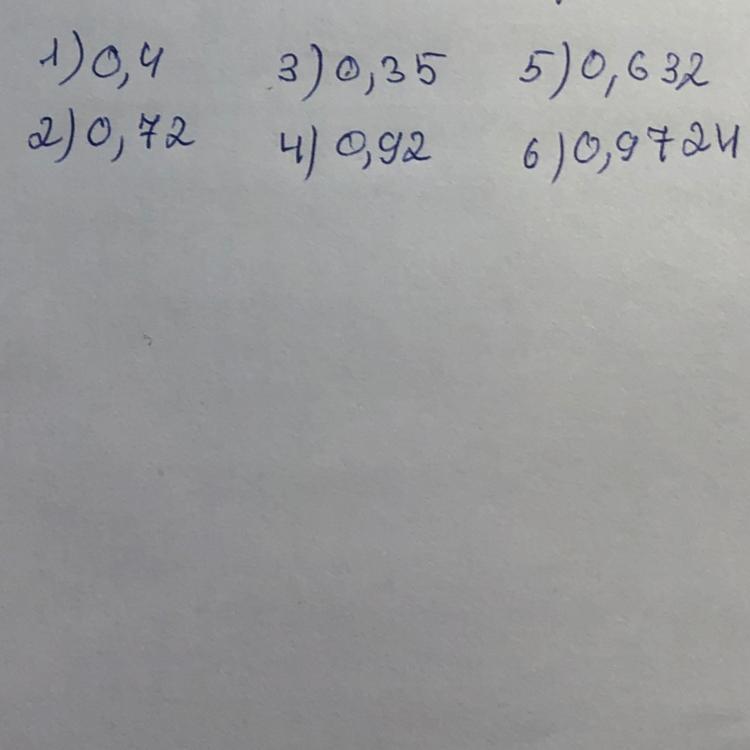 1) 0,4 3) 0,35 5) 0,632
2) 0,72 4) 0,92 6) 0,9724